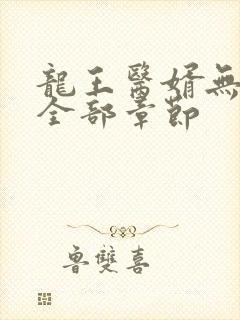 龍王醫婿無
全部章節
魯雙喜